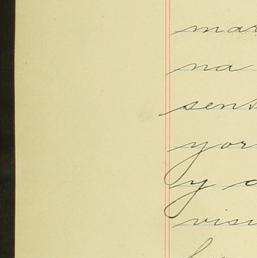 mar
na
sent
yor
y c
visi